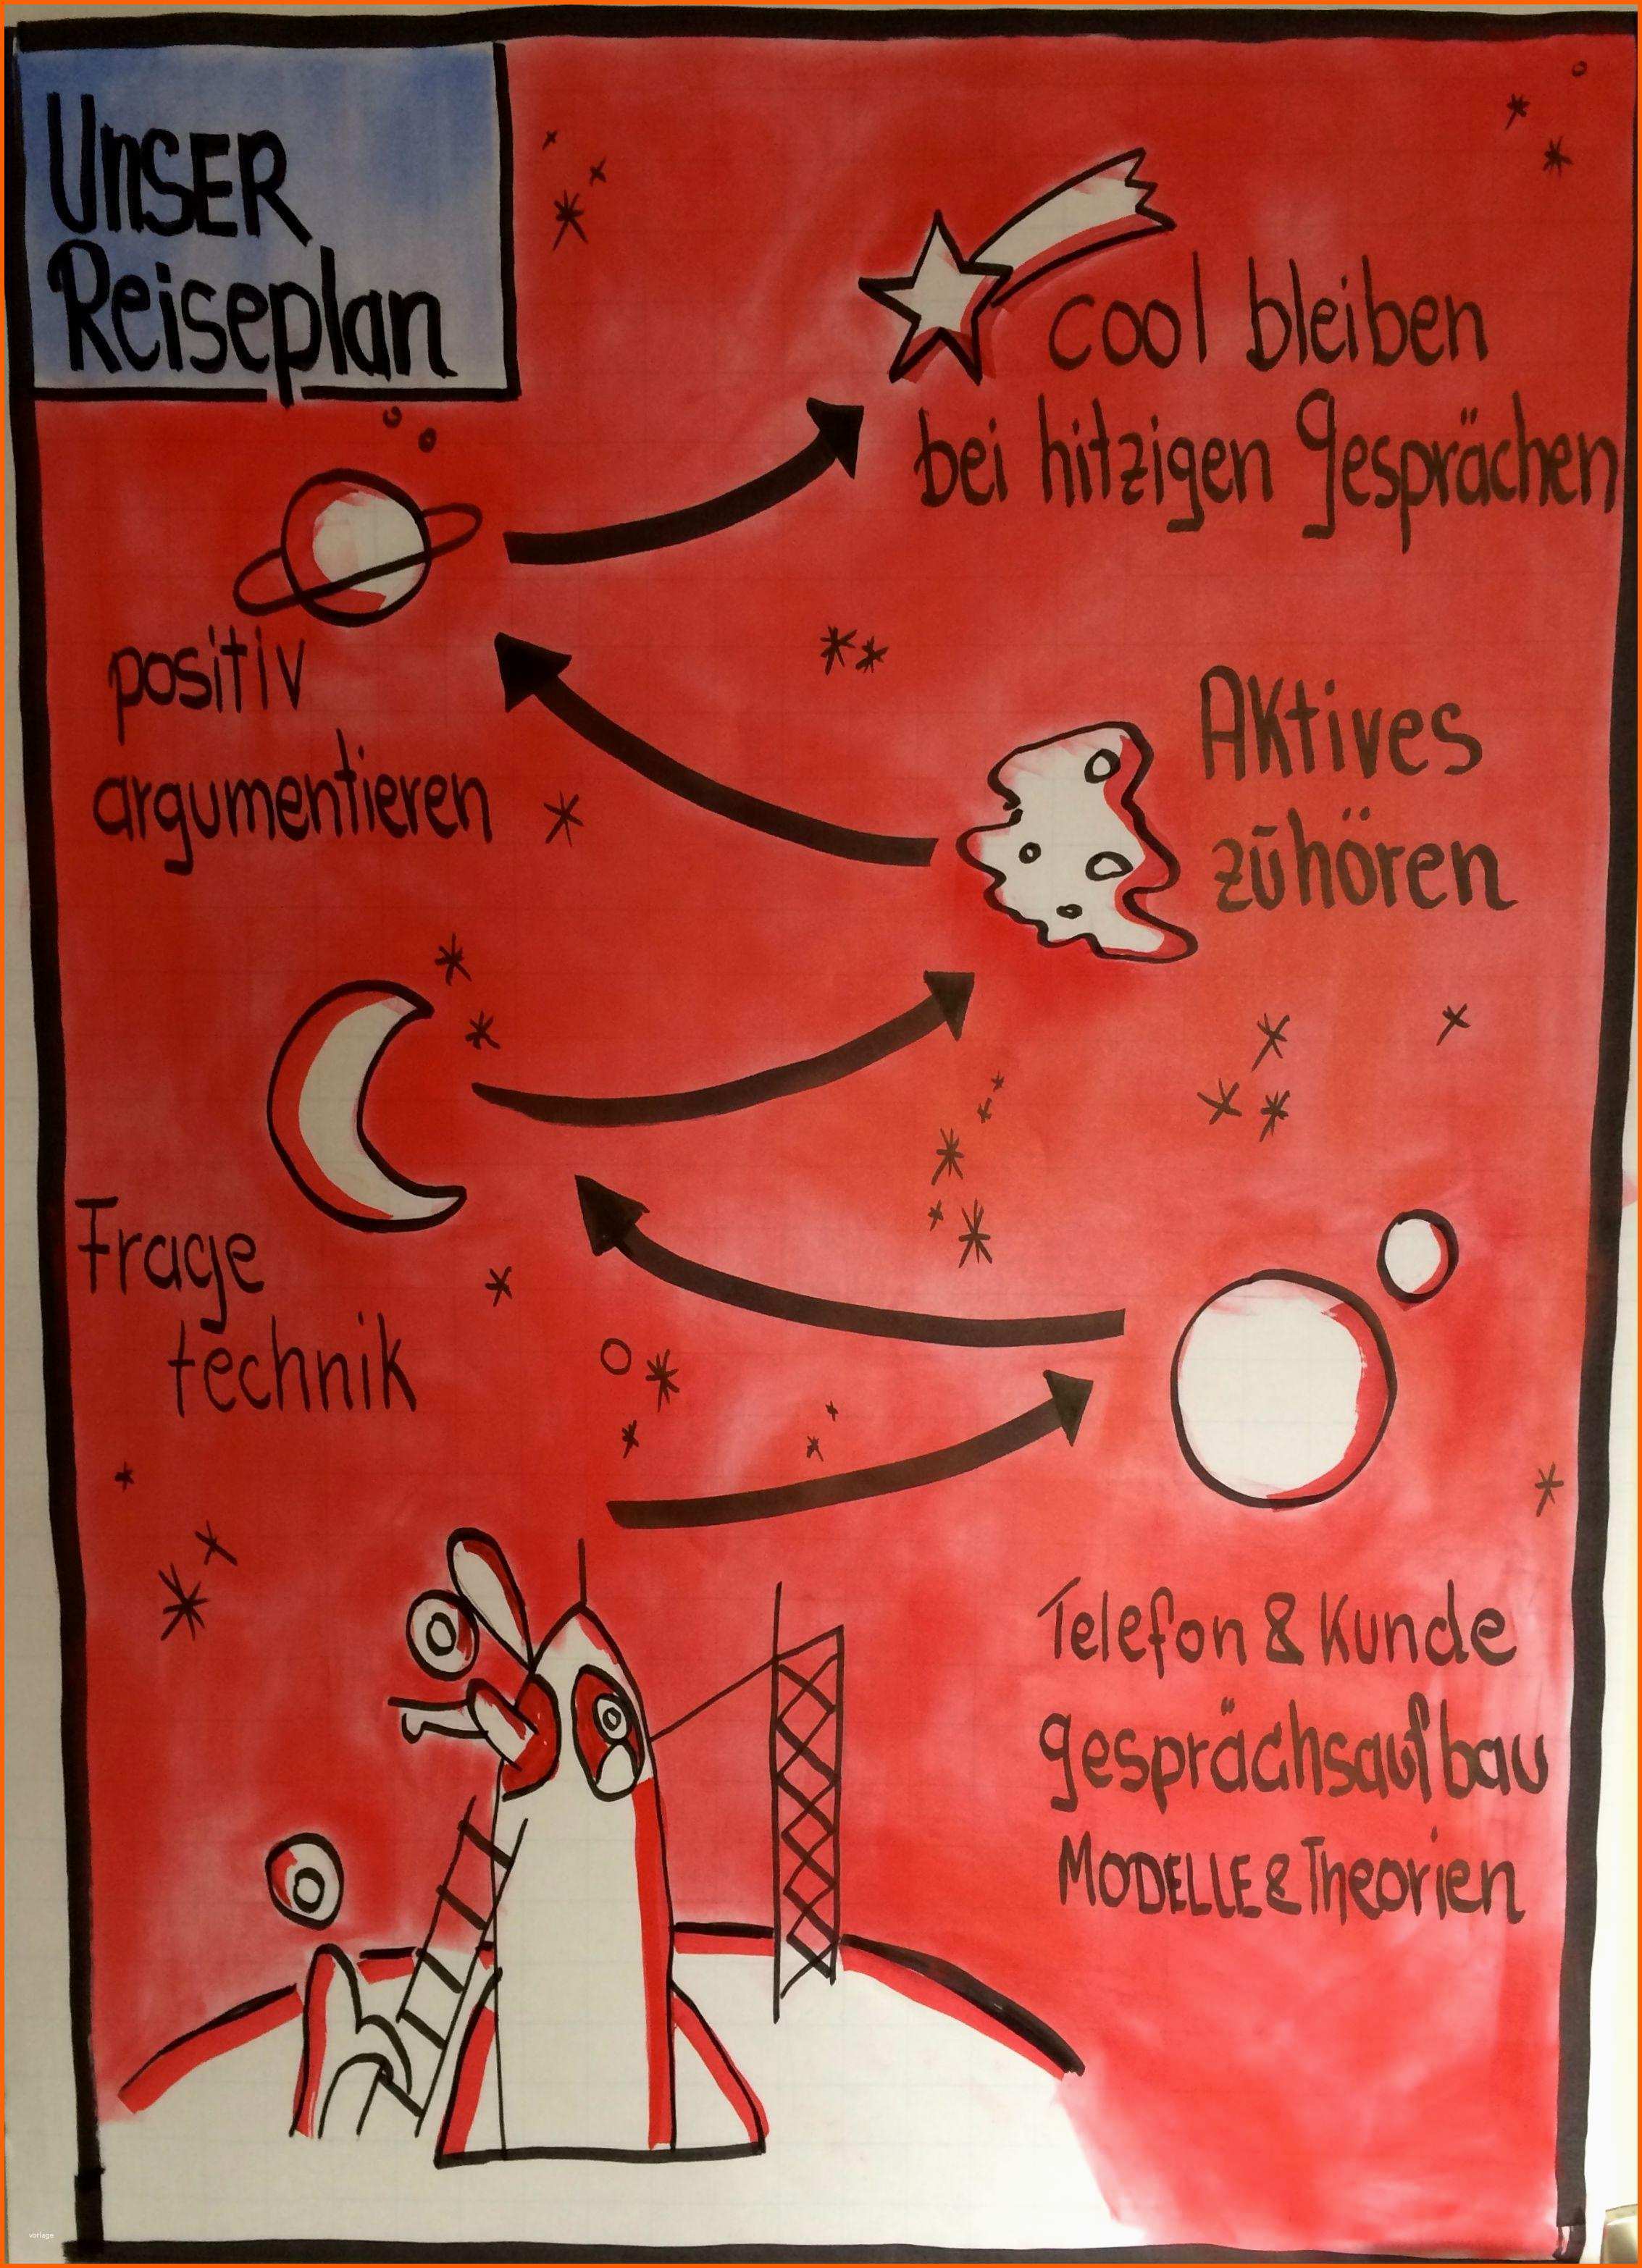 UnSER
Reiseplan
cool bleiben
bei hitzigen Gesprächen
positiv
argumentieren
Aktives
zūhören
Frage
technik
Telefon & Kunde
gesprächsaufbau
MODELLE & Theorien
vorlage